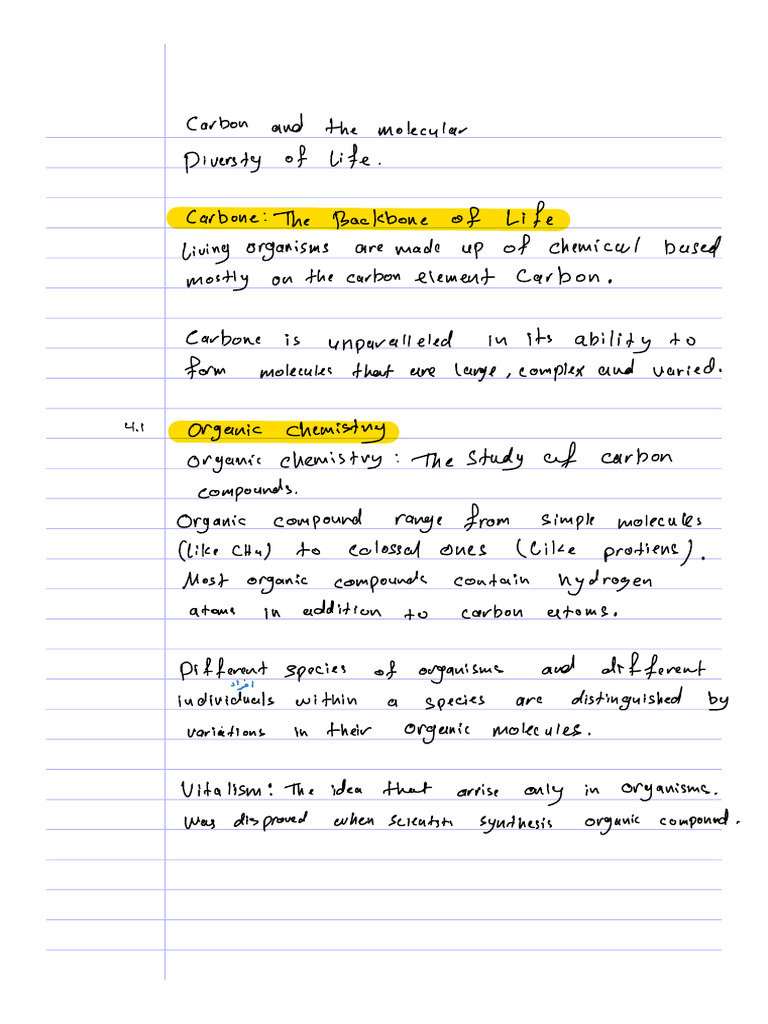 Carbon and the molecular
Diversty of Life.
Carbone: The Backbone of Life
Living organisms are made up of chemical based
mostly on the carbon element Carbon.
Carbone is unparalleled in its ability to
form molecules that are large, complex and varied.
4.1 Organic chemistry
Organic chemistry: The Study of carbon
compounds.
Organic compound range from simple molecules
(like CH4) to colossal ones (like protiens).
Most organic compounds contain hydrogen
atoms in addition to carbon atoms.
Different species of organisms and different
افراد
individuals within a species are distinguished by
variations in their organic molecules.
Vitalism: The idea that arrise only in organisms.
Was disproved when scientists synthesis organic compound.